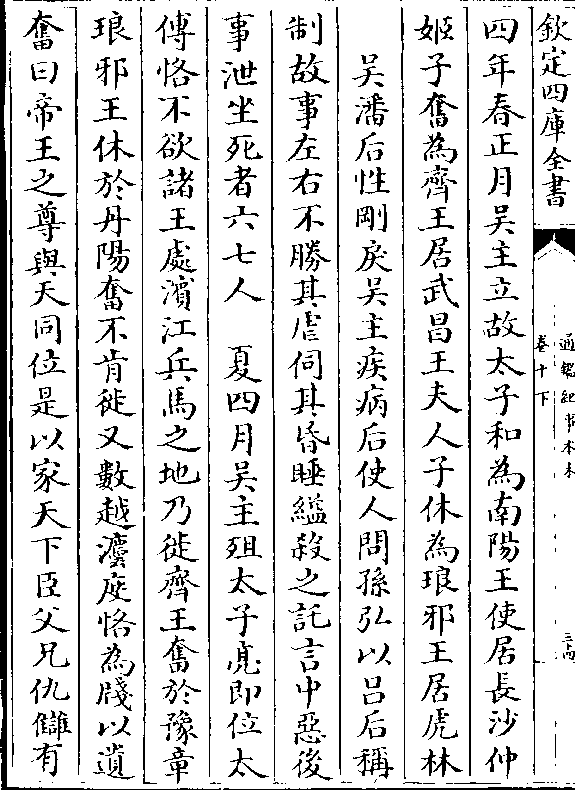 欽定四庫全書
通鑑紀事本末
卷十下
三十四
四年春正月吳主立故太子和為南陽王使居長沙仲
姬子奮為齊王居武昌王夫人子休為琅邪王居虎林
吳潘后性剛戾吳主疾病后使人問孫弘以吕后稱
制故事左右不勝其虐伺其昏睡縊殺之託言中惡後
事泄坐死者六七人　夏四月吳主殂太子亮即位太
傅恪不欲諸王處濱江兵馬之地乃徙齊王奮於豫章
琅邪王休於丹陽奮不肯徙又數越灋度恪為牋以遺
奮曰帝王之尊與天同位是以家天下臣父兄仇讎有